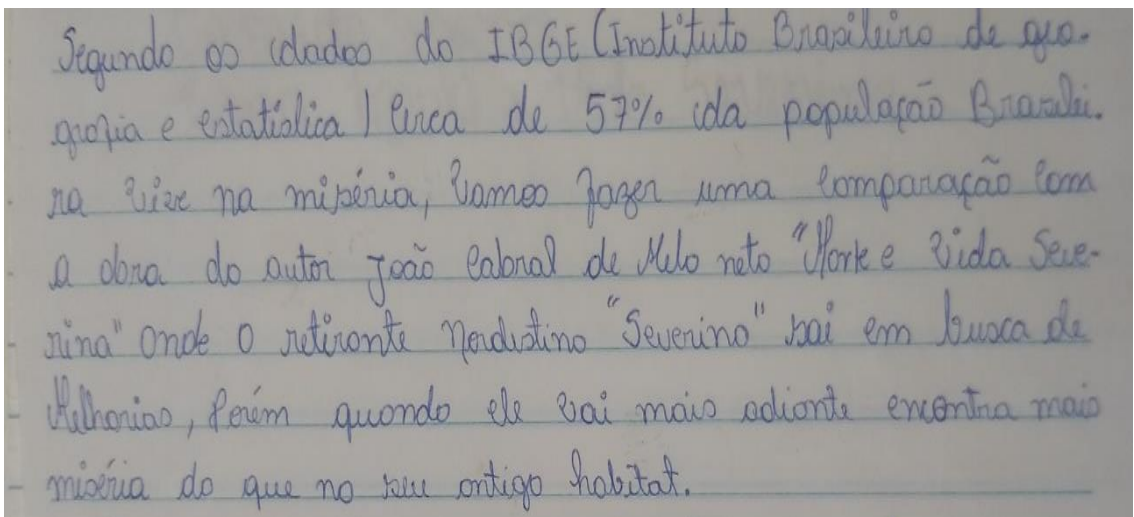 Segundo os dados do IBGE (Instituto Brasileiro de geo-
grafia e estatística) Cerca de 57% da população Brasilei-
ra Vive na miséria, Vamos fazer uma comparação com
a obra do autor João Cabral de Melo neto "Morte e Vida Seve-
rina" onde o retirante nordestino "Severino" sai em busca de
Melhorias, Porém quando ele vai mais adiante encontra mais
miséria do que no seu antigo habitat.